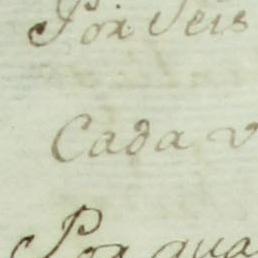 Por Seis
Cada v
Por qua